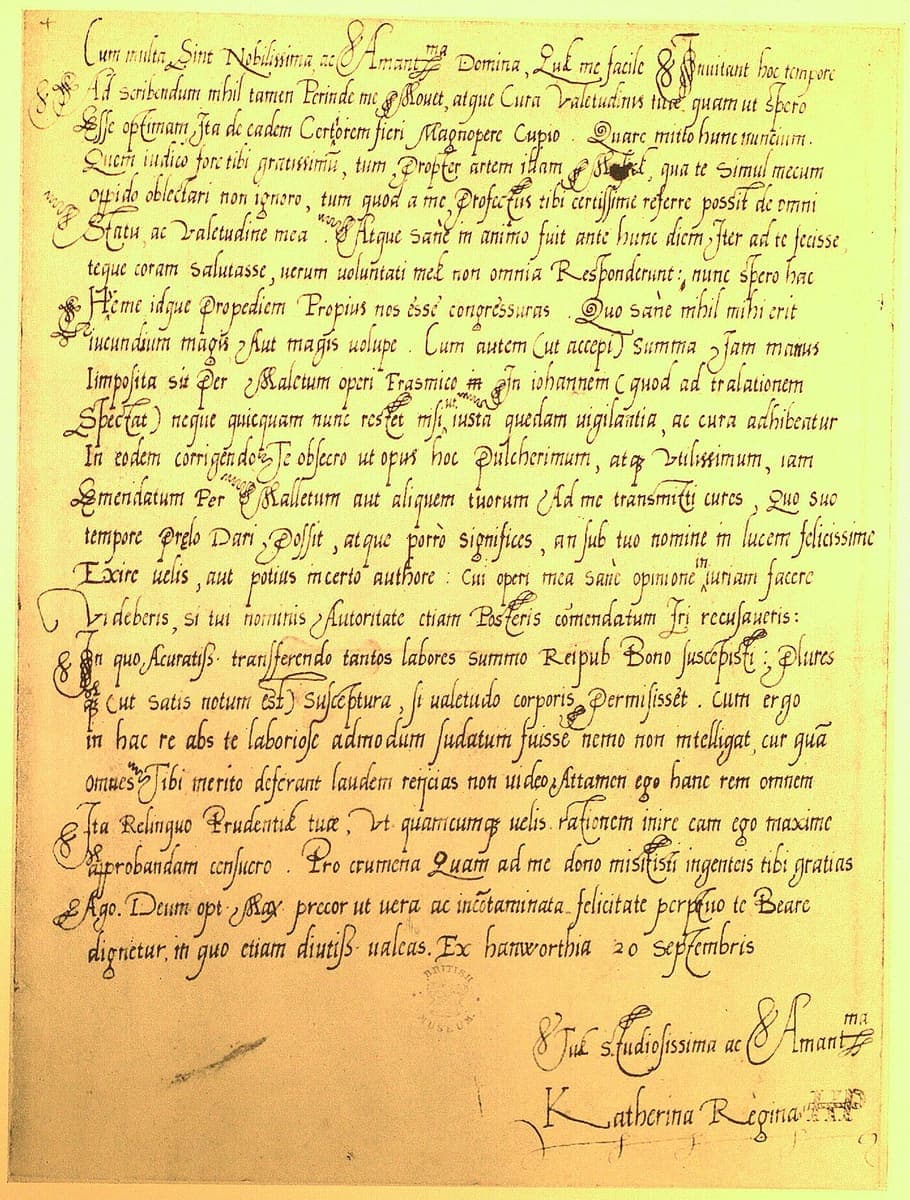 Cum multa Sint Nobilissima, ac Amant^ma Domina, Quæ me facile Inuitant hoc tempore
Ad Scribendum nihil tamen Perinde me Mouet, atque Cura Valetudinis tuæ, quam ut spero
Esse optimam, Ita de eadem Certiorem fieri Magnopere Cupio. Quare mitto hunc nuncium.
Quem iudico fore tibi gratissimū, tum Propter artem illam qua te Simul mecum
oppido oblectari non ignoro, tum quod a me Profectus tibi certissime referre possit de omni
Statu, ac Valetudine mea. Atque Sanè in animo fuit ante hunc diem Iter ad te fecisse,
teque coram Salutasse, uerum uoluntati meæ non omnia Responderunt: nunc spero hac
Hieme idque Propediem Propius nos esse congressuras. Quo Sanè nihil mihi erit
iucundium magis Aut magis uolupe. Cum autem (ut accepi) Summa Iam manus
Iimposita sit Per Maletum operi Erasmico in In iohannem (quod ad tralationem
Spectat) neque quicquam nunc restet nisi ut iusta quedam uigilantia, ac cura adhibeatur
In eodem corrigendo, Te obsecro ut opus hoc Pulcherimum, atq; Vtilissimum, iam
Emendatum Per Malletum aut aliquem tuorum Ad me transmitti cures, Quo suo
tempore Prelo Dari Possit, atque porrò significes, an sub tuo nomine in lucem felicissime
Exire uelis, aut potius incerto authore: Cui operi mea Sanè opinione iniuriam facere
Videberis, si tui nominis Autoritate etiam Posteris cōmendatum Iri recusaueris:
In quo Acuratiss. transferendo tantos labores summo Reipub Bono suscepisti: Plures
q; (ut Satis notum est) Susceptura, si ualetudo corporis Permisisset. Cum ergo
in hac re abs te laboriose admodum sudatum fuisse nemo non intelligat, cur quā
omnes Tibi merito deferant laudem reijcias non uideo. Attamen ego hanc rem omnem
Ita Relinquo Prudentiæ tuæ, Vt quamcumq; uelis rationem inire eam ego maxime
approbandam censuero. Pro crumena Quam ad me dono misisti ingenteis tibi gratias
Ago. Deum opt. Max. precor ut uera ac incōtaminata felicitate perpetuo te Beare
dignetur, in quo etiam diutiss. ualeas. Ex hanworthia 20 Septembris
BRITISH MUSEUM
Tuæ Studiosissima ac Amant^ma
Katherina Regina KP